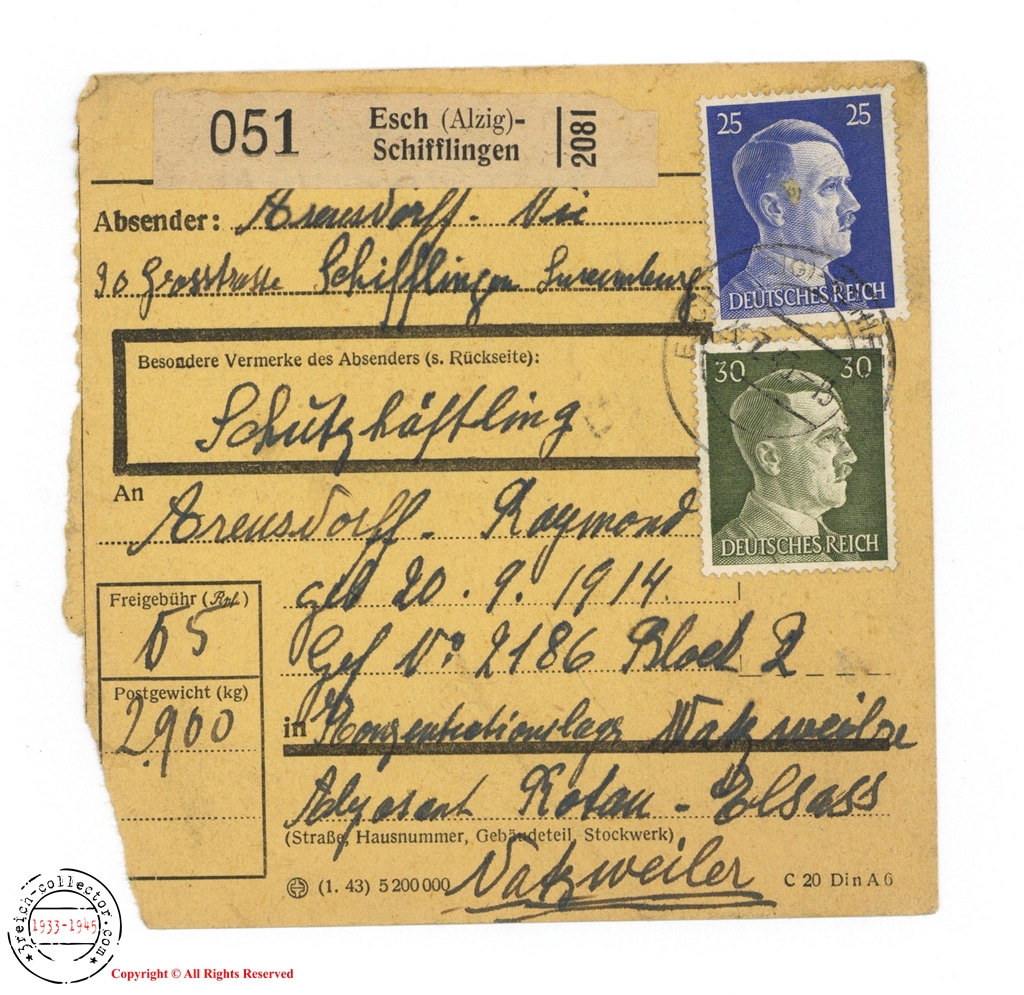 051 Esch (Alzig)-
Schifflingen
2081
25 25
DEUTSCHES REICH
Absender: Arensdorff - Vic
90 Grosstrasse Schifflingen Luxemburg
Besondere Vermerke des Absenders (s. Rückseite):
Schutzhäftling
30 30
DEUTSCHES REICH
An
Arensdorff - Raymond
geb 20.9.1914.
Gef No 2186 Block 2
in Konzentrationslager Natzweiler
Rotau - Elsass
(Straße, Hausnummer, Gebäudeteil, Stockwerk)
Natzweiler
Freigebühr (Rpf.)
55
Postgewicht (kg)
2,900
(1. 43) 5 200 000
C 20 Din A 6
3reich-collector.com
1933-1945
Copyright © All Rights Reserved